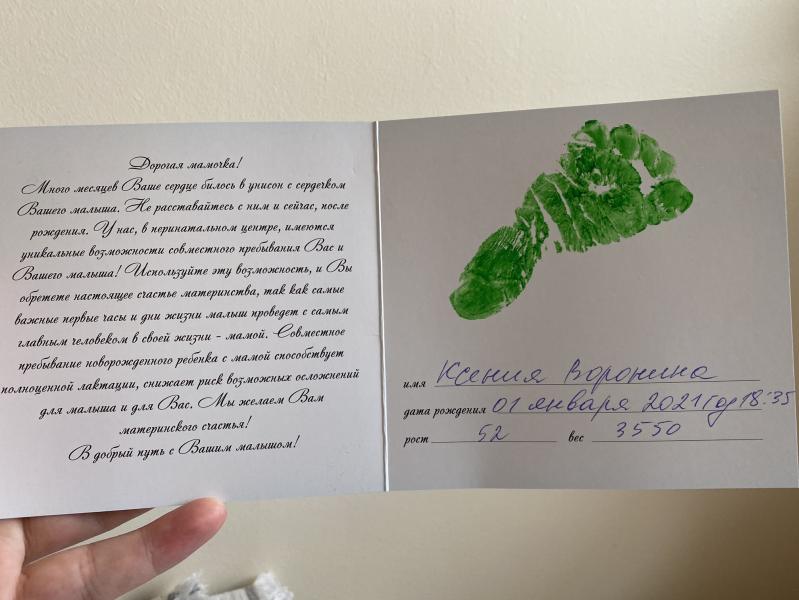 Дорогая мамочка!
Много месяцев Ваше сердце билось в унисон с сердечком
Вашего малыша. Не расставайтесь с ним и сейчас, после
рождения. У нас, в перинатальном центре, имеются
уникальные возможности совместного пребывания Вас и
Вашего малыша! Используйте эту возможность, и Вы
обретете настоящее счастье материнства, так как самые
важные первые часы и дни жизни малыш проведет с самым
главным человеком в своей жизни - мамой. Совместное
пребывание новорожденного ребенка с мамой способствует
полноценной лактации, снижает риск возможных осложнений
для малыша и для Вас. Мы желаем Вам
материнского счастья!
В добрый путь с Вашим малышом!
имя Ксения Воронина
дата рождения 01 января 2021 год 18:35
рост 52 вес 3550